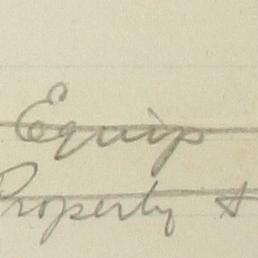 Equip
Property &